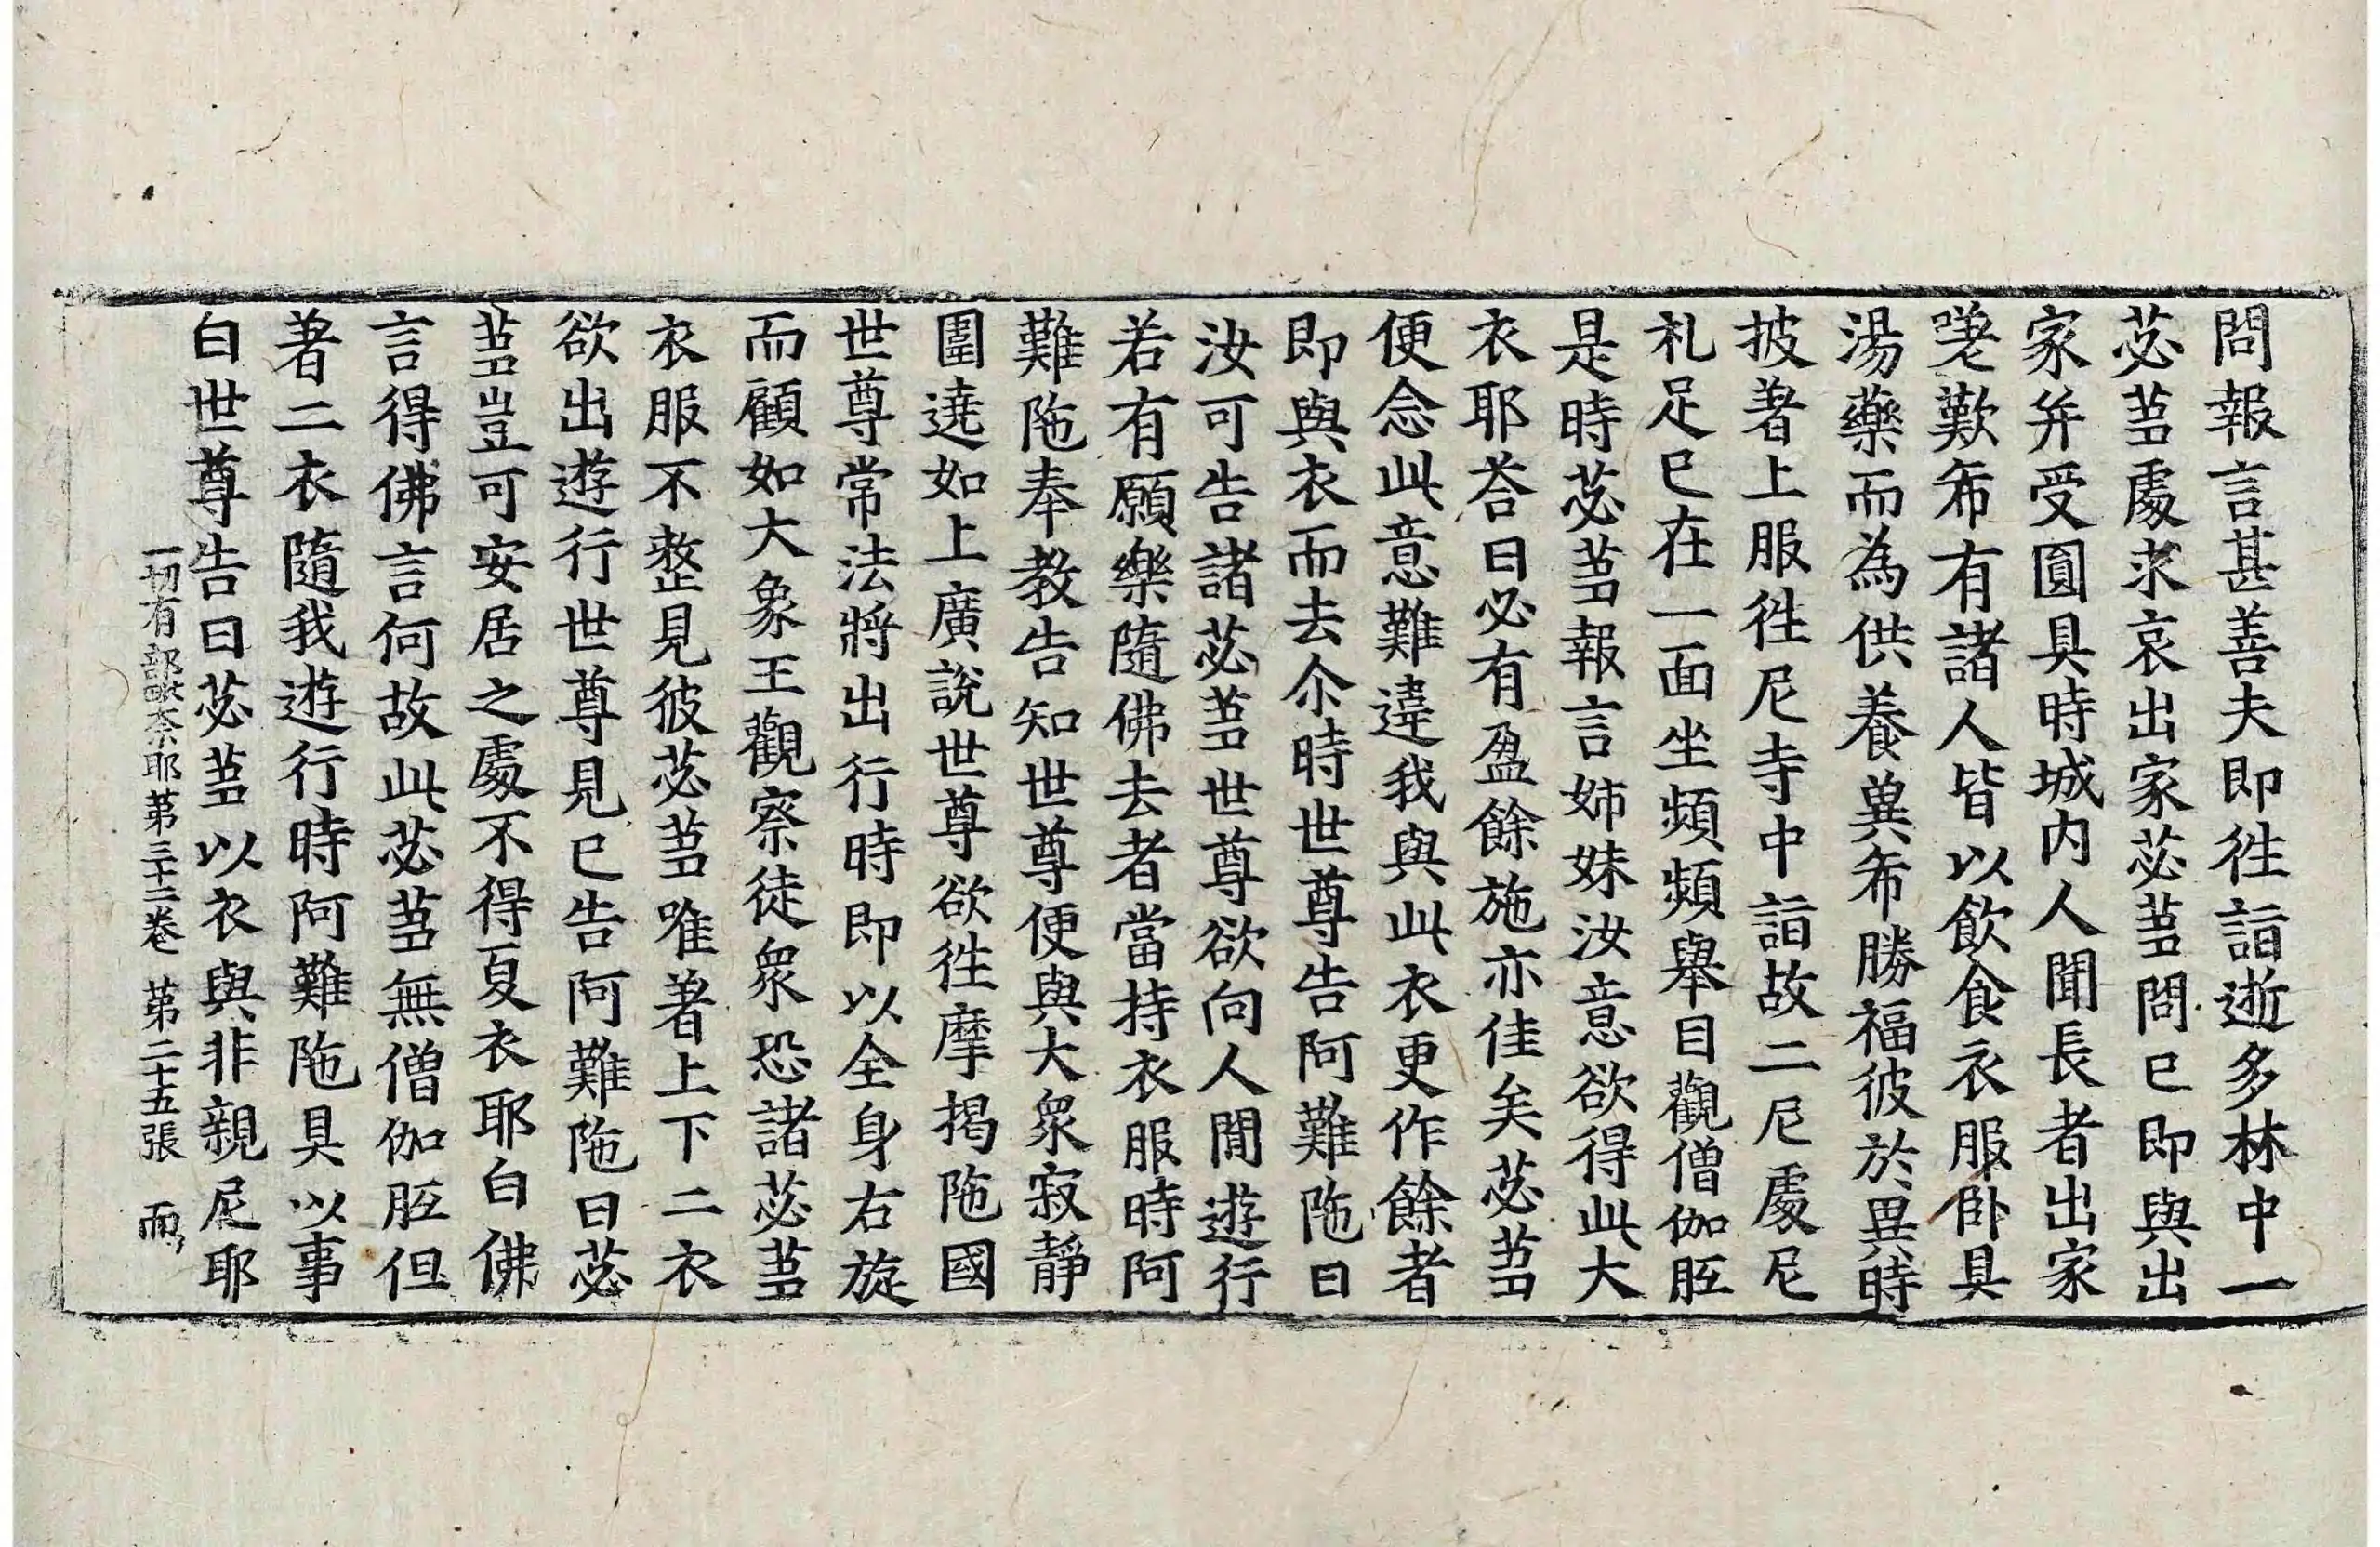 問報言甚善夫即徃詣逝多林中一
苾芻處求哀出家苾芻問已即與出
家并受圓具時城内人聞長者出家
嗟歎希有諸人皆以飲食衣服卧具
湯藥而為供養兾希勝福彼於異時
披著上服徃尼寺中詣故二尼處尼
礼足已在一面坐頻頻舉目觀僧伽胝
是時苾芻報言姉妹汝意欲得此大
衣耶荅曰必有盈餘施亦佳矣苾芻
便念此意難違我與此衣更作餘者
即與衣而去尒時世尊告阿難陁曰
汝可告諸苾芻世尊欲向人閒遊行
若有願樂隨佛去者當持衣服時阿
難陁奉教告知世尊便與大衆寂靜
圍遶如上廣說世尊欲徃摩揭陁國
世尊常法將出行時即以全身右旋
而顧如大象王觀察徒衆恐諸苾芻
衣服不整見彼苾芻唯著上下二衣
欲出遊行世尊見已告阿難陁曰苾
芻豈可安居之處不得夏衣耶白佛
言得佛言何故此苾芻無僧伽胝但
著二衣隨我遊行時阿難陁具以事
白世尊告曰苾芻以衣與非親尼耶
一切有部毗奈耶第三十二卷 第二十五張 而